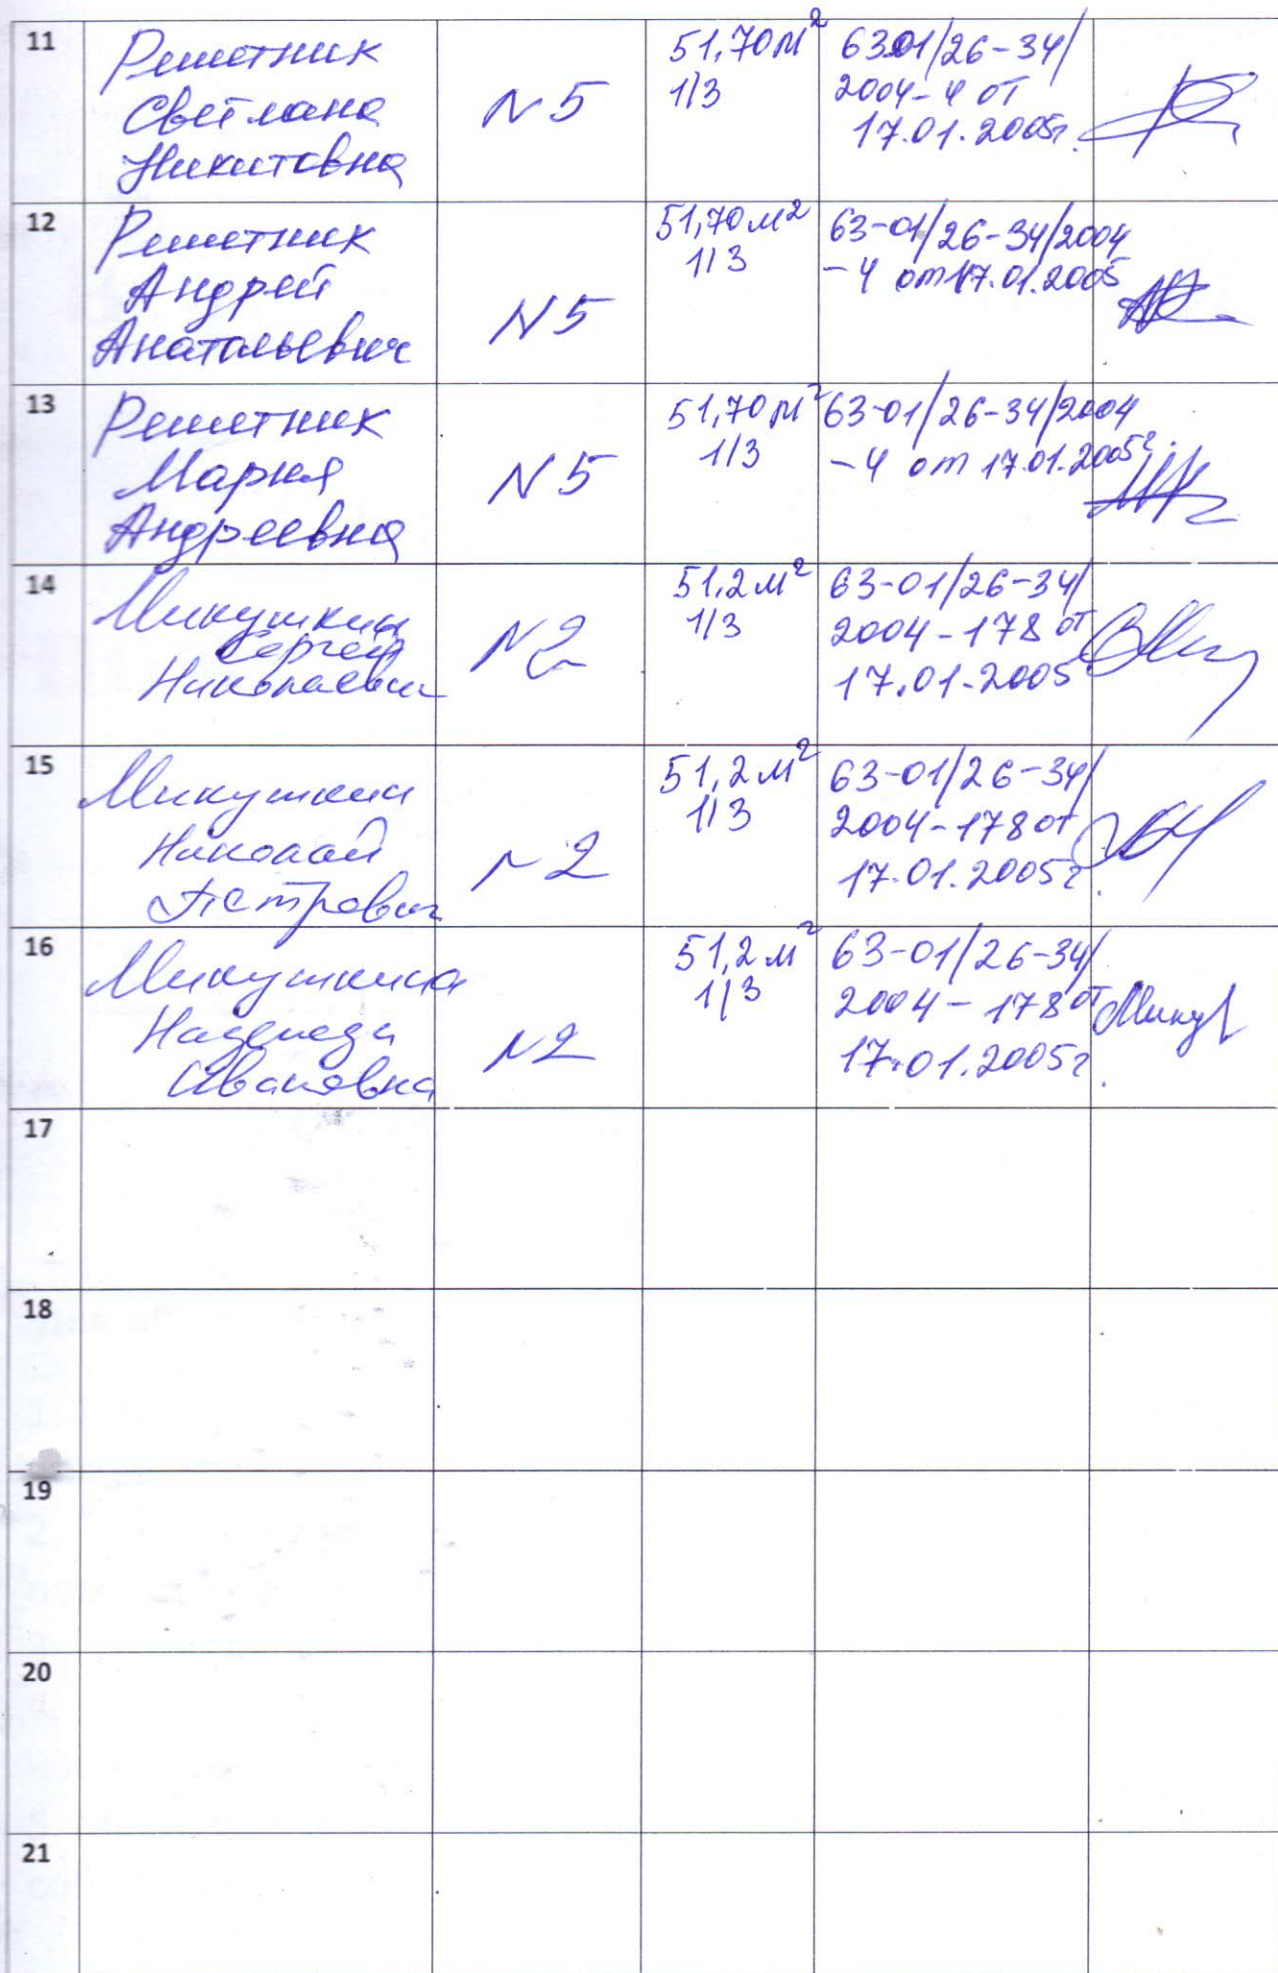 11
Решетник
Светлана
Никитовна
N 5
51,70 м²
1/3
63-01/26-34/
2004-4 от
17.01.2005г.
12
Решетник
Андрей
Анатольевич
N 5
51,70 м²
1/3
63-01/26-34/2004
-4 от 17.01.2005
13
Решетник
Мария
Андреевна
N 5
51,70 м²
1/3
63-01/26-34/2004
-4 от 17.01.2005г.
14
Микушкин
Сергей
Николаевич
N 2
51,2 м²
1/3
63-01/26-34/
2004-178 от
17.01.2005
15
Микушкин
Николай
Петрович
N 2
51,2 м²
1/3
63-01/26-34/
2004-178 от
17.01.2005г.
16
Микушкина
Надежда
Ивановна
N 2
51,2 м²
1/3
63-01/26-34/
2004-178 от
17.01.2005г.
17
18
19
20
21